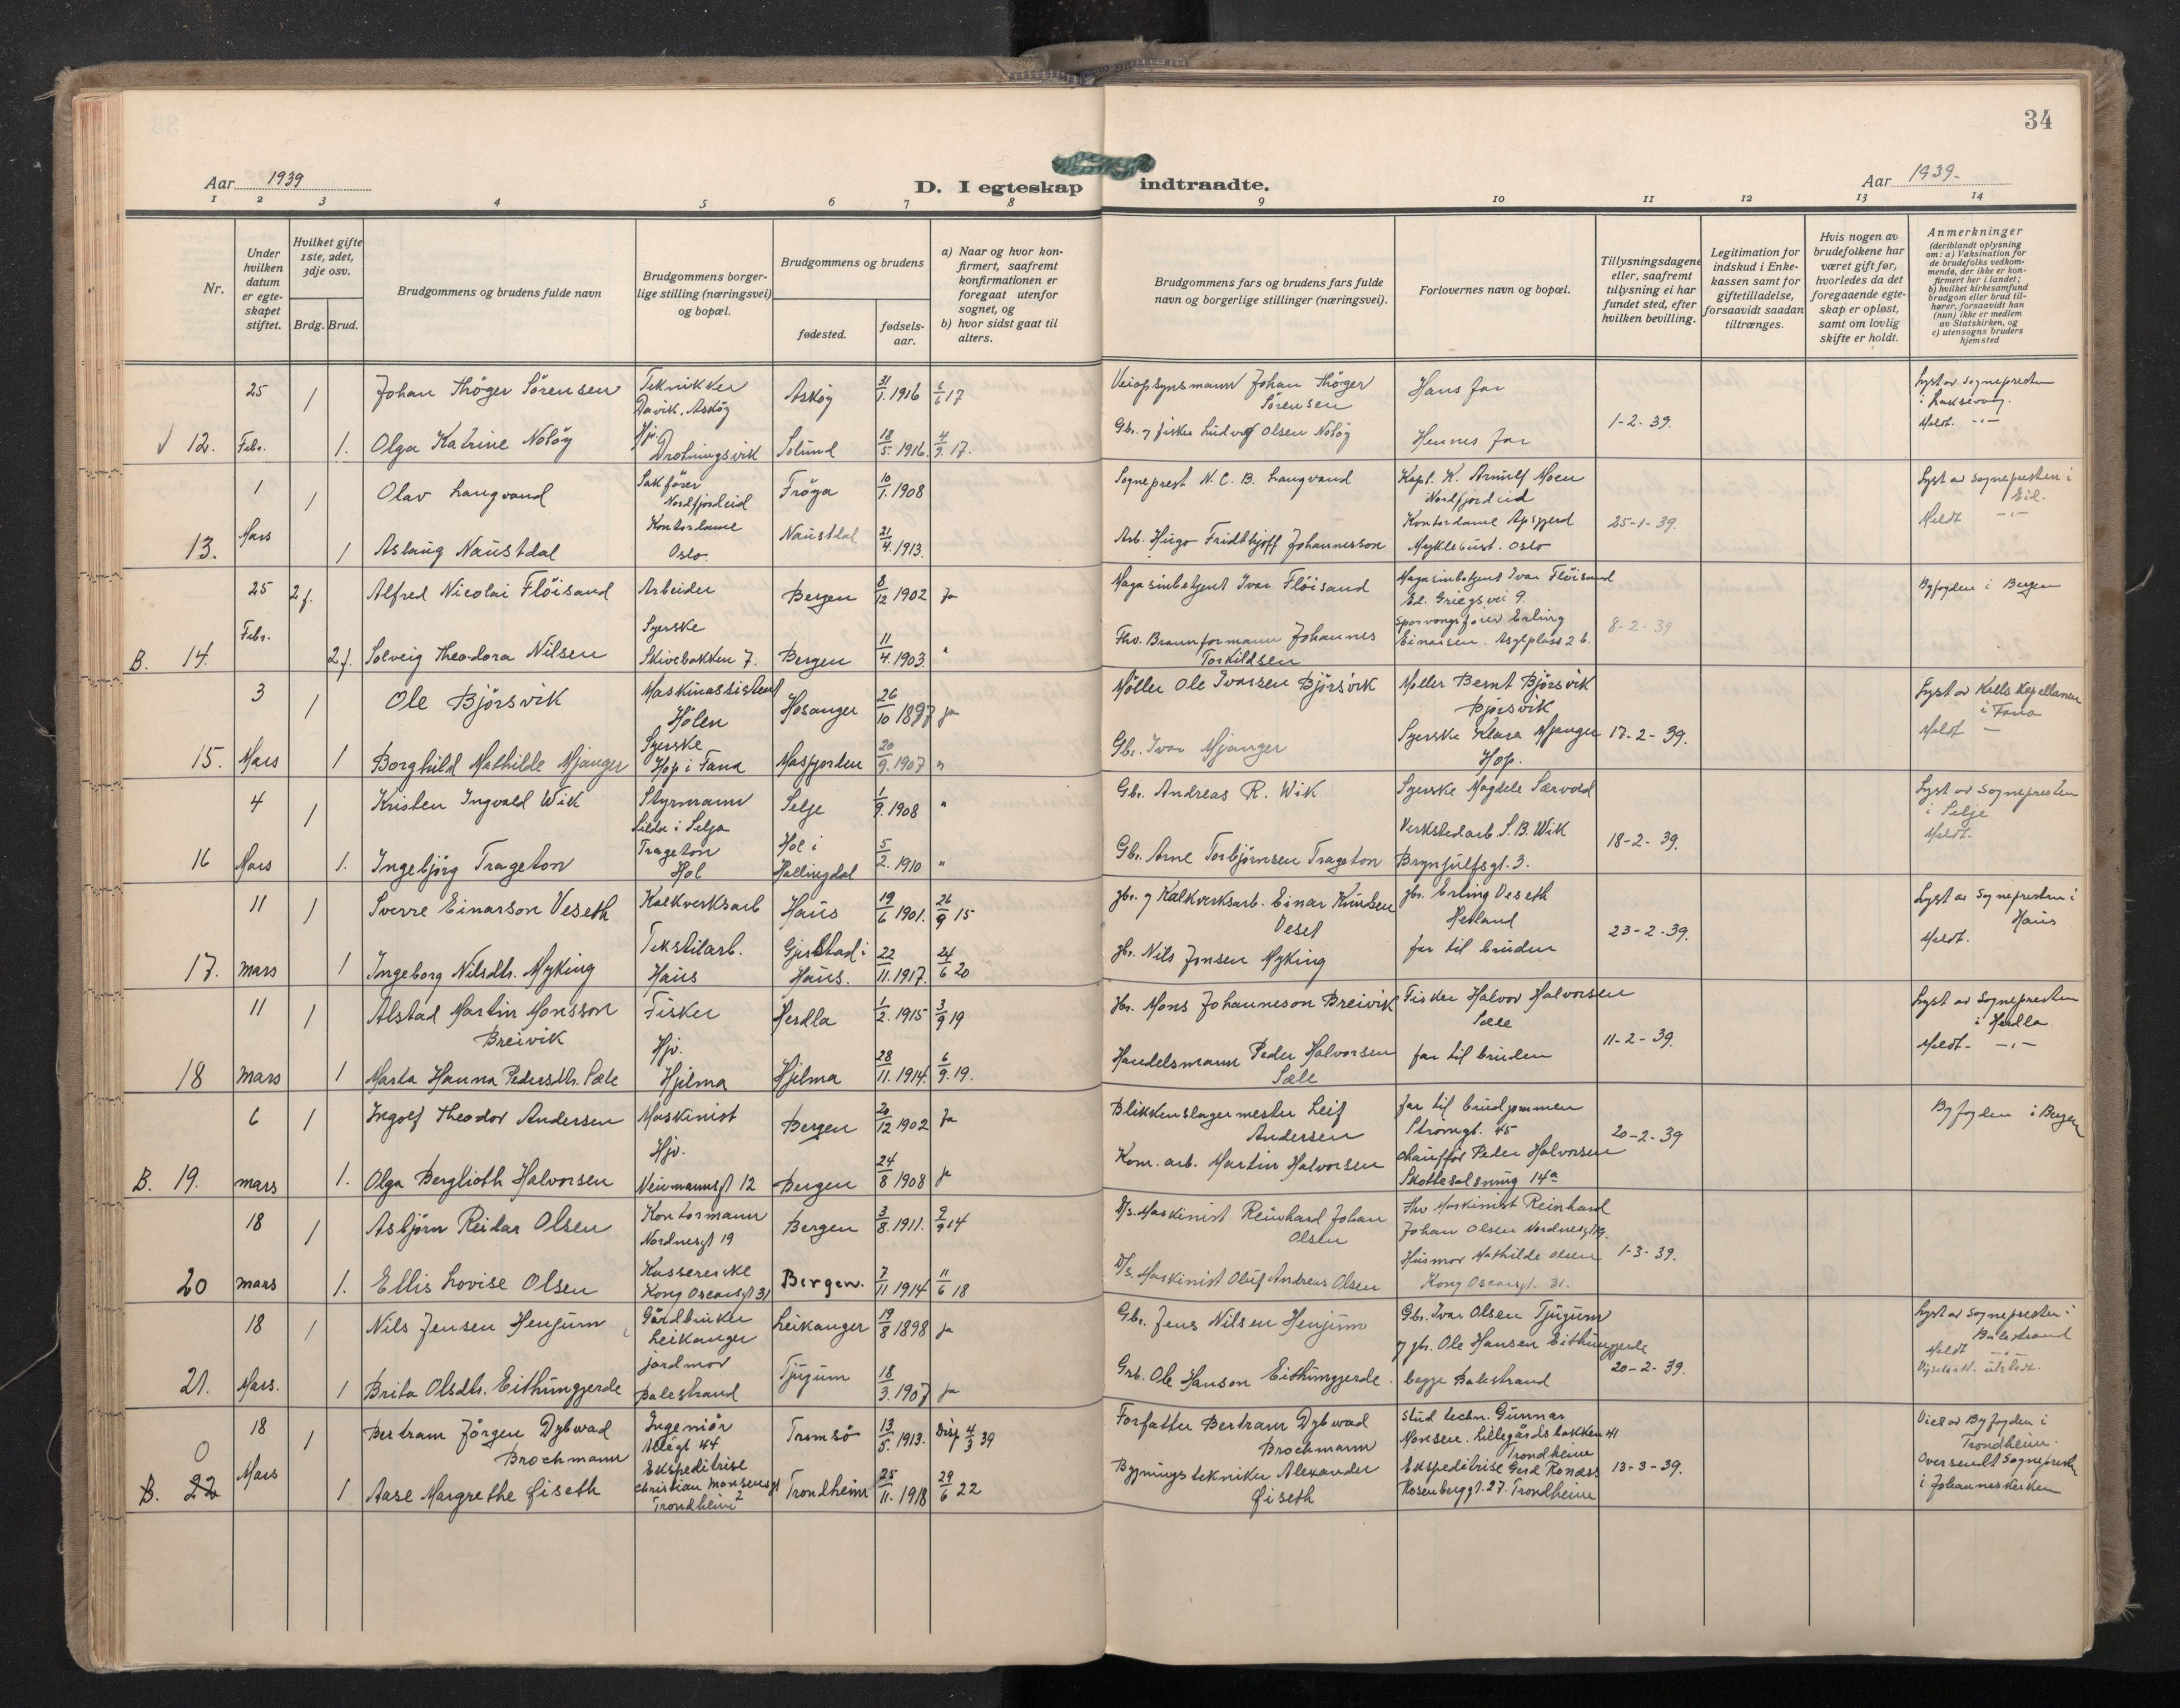 34
Aar 1939
D. I egteskap indtraadte.
Aar 1939.
1 2 3 4 5 6 7 8 9 10 11 12 13 14
Nr.
Under hvilken datum er egteskapet stiftet.
Hvilket gifte 1ste, 2det, 3dje osv.
Brdg. Brud.
Brudgommens og brudens fulde navn
Brudgommens borgerlige stilling (næringsvei) og bopæl.
Brudgommens og brudens
fødested.
fødselsaar.
a) Naar og hvor konfirmert, saafremt konfirmationen er foregaat utenfor sognet, og
b) hvor sidst gaat til alters.
Brudgommens fars og brudens fars fulde navn og borgerlige stillinger (næringsvei).
Forlovernes navn og bopæl.
Tillysningsdagene eller, saafremt tillysning ei har fundet sted, efter hvilken bevilling.
Legitimation for indskud i Enkekassen samt for giftetilladelse, forsaavidt saadan tiltrænges.
Hvis nogen av brudefolkene har været gift før, hvorledes da det foregaaende egteskap er opløst, samt om lovlig skifte er holdt.
Anmerkninger
(deriblandt oplysning om: a) Vaksination for de brudefolks vedkommende, der ikke er konfirmert her i landet; b) hvilket kirkesamfund brudgom eller brud tilhører, forsaavidt han (hun) ikke er medlem av Statskirken, og c) utensogns bruders hjemsted
25 1 Johan Thöger Sörensen Teknikker Askøy 31/1. 1916 6/6 17 Veiopsynsmann Johan Thöger Hans far Lyst av sognepresten
Davik. Askøy Sörensen i Laksevaag.
1-2-39. Meldt. -"-
12. Febr. 1. Olga Katrine Notöy Hjv. Solund 18/5. 1916. 4/9. 17. Gbr. og fisker Ludvig Olsen Notöy Hennes far
Drotningsvik
1 1 Olav Langvand Sakfører Fröya 10/1. 1908 Sogneprest N. C. B. Langvand Kapt. K. Arnulf Moen Lyst av sognepresten i
Nordfjordeid Nordfjordeid Eid.
Mars Kontordame Kontordame 25-1-39. Meldt -"-
13. 1 Aslaug Naustdal Oslo. Naustdal 21/4. 1913. Arb. Hugo Fridthjoff Johannesson Myklebust. Oslo
25 2 f. Alfred Nicolai Flöisand Arbeider Bergen 8/12 1902 Ja Magasinbetjent Ivar Flöisand Magasinbetjent Ivar Flöisand Byfogden i Bergen
Ed. Griegs vei 9.
Febr. Syerske Sporvognsfører Erling 8-2-39
B. 14. 2 f. Solveig Theodora Nilsen Skivebakken 7. Bergen 11/4. 1903. " Fhv. Brannformann Johannes Einarsen. Asylplass 2 b.
Torkildsen
3 1 Ole Björsvik Maskinassistent Hosanger 26/10 1897 ja Møller Ole Ivarsen Björsvik Møller Bernt Björsvik Lyst av Kallskapellanen
Hølen Björsvik i Fana
15. Mars 1 Borghild Mathilde Mjanger Syerske Masfjorden 20/9. 1907 " Gbr. Ivar Mjanger Syerske Klara Mjanger 17-2-39. Meldt -
Hop i Fana Hop.
4 1 Kristen Ingvald Wik Styrmann Selje 1/9. 1908 " Gbr. Andreas R. Wik Syerske Magdele Særvold Lyst av Sognepresten
Silda i Selja i Selje
Verkstedarb. S. B. Wik 18-2-39. Meldt.
16 Mars 1. Ingebjörg Trageton Trageton Hol i 5/2. 1910 " Gbr. Arne Torbjørnsen Trageton Brynjulfsgt. 3.
Hol Hallingdal
11 1 Sverre Einarson Veseth Kalkverksarb Haus 19/6 1901. 26/9 15 gbr. og Kalkverksarb. Einar Knutsen gbr. Erling Veseth Lyst av Sognepresten i
Veset Hetland Haus
23-2-39. Meldt.
17. mars 1 Ingeborg Nilsdtr. Myking Tekstilarb. Gjerstad i 22/11. 1917. 24/6 20 gbr. Nils Jonsen Myking far til bruden
Haus Haus.
11 1 Alstad Martin Monsson Fisker Herdla 1/2. 1915 3/9 19 gbr. Mons Johanneson Breivik Fisker Halvor Halvorsen Lyst av Sognepresten
Breivik Sæle i Herdla
Hjv. 11-2-39. Meldt. -"-
18 mars 1 Marta Hanna Pedersdtr. Sæle Hjelma Hjelma 28/11. 1914. 6/9. 19. Handelsmann Peder Halvorsen far til bruden
Sæle
6 1 Ingolf Theodor Andersen Maskinist Bergen 20/12 1902 Ja Blikkenslagermester Leif far til brudgommen Byfogden i Bergen
Andersen Strömgt. 45 20-2-39
B. 19. mars 1. Olga Berglioth Halvorsen Hjv. Bergen 24/8 1908 ja Kom. arb. Martin Halvorsen chauffør Peder Halvorsen
Neumannsgt 12 Skottesalsmug 14a
18 1 Asbjörn Reidar Olsen Kontormann Bergen 3/8. 1911. 2/9 14 D/s. Maskinist Reinhard Johan fhv Maskinist Reinhard
Nordnesgt 19 Olsen Johan Olsen Nordnesgt 19.
20 mars 1. Ellis Lovise Olsen Kassererske Bergen. 7/11 1914 11/6 18 D/s. Maskinist Oluf Andreas Olsen Husmor Mathilde Olsen 1-3-39.
Kong Oscarsgt 31 Kong Oscarsgt. 31.
18 1 Nils Jensen Henjum Gårdbruker Leikanger 19/8 1898 ja Gbr. Jens Nilsen Henjum Gbr. Ivar Olsen Tjugum Lyst av Sognepresten i
Leikanger og gb. Ole Hansen Eithungjerde Balestrand
Meldt -"-
21. Mars. 1 Brita Olsdtr. Eithungjerde jordmor Tjugum 18/3. 1907 ja Grb. Ole Hanson Eithungjerde. begge Balestrand 20-2-39. Vigselsatt. utstedt.
Balestrand
18 1 Bertram Jörgen Dybwad Ingeniör Tromsö 13/5. 1913. Disp 4/3 39 Forfatter Bertram Dybwad Stud techn. Gunnar Viet av Byfogden i
0 Brochmann Allégt 44 Brochmann Monsen. Lillegårdsbakken 41 Trondheim.
Trondheim Oversendt Sognepresten
B. 22 Mars 1 Aase Margrethe Fiseth Ekspeditrise Trondheim 25/11. 1918 29/6 22 Bygningstekniker Alexander Ekspeditrise Gerd Ronæss 13-3-39. i Johanneskirken
Christian Monsensgt 2 Fiseth Rosenborggt. 27. Trondheim
Trondheim